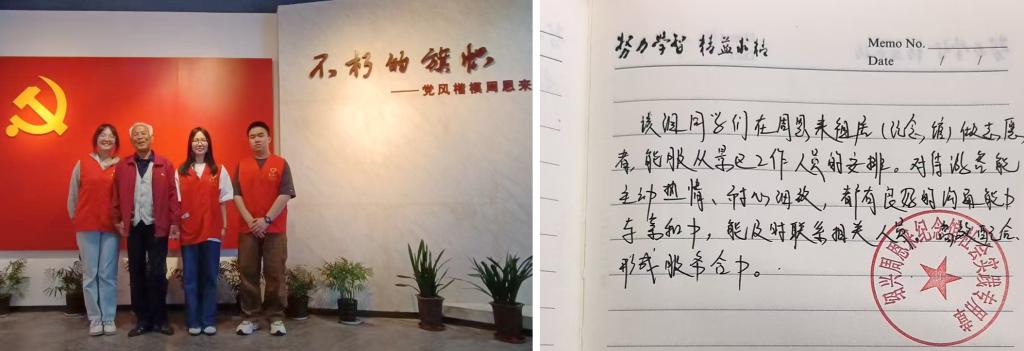 不朽的旗帜
——党风楷模周恩来
努力学习 精益求精
Memo No.
Date / /
该组同学们在周恩来祖居(纪念馆)做志愿
者,能服从景区工作人员的安排。对待游客能
主动热情、耐心细致,都有良好的沟通能力
与亲和力,能及时联系相关人员,高效配合
形成服务合力。
绍兴周恩来纪念馆社会实践专用章